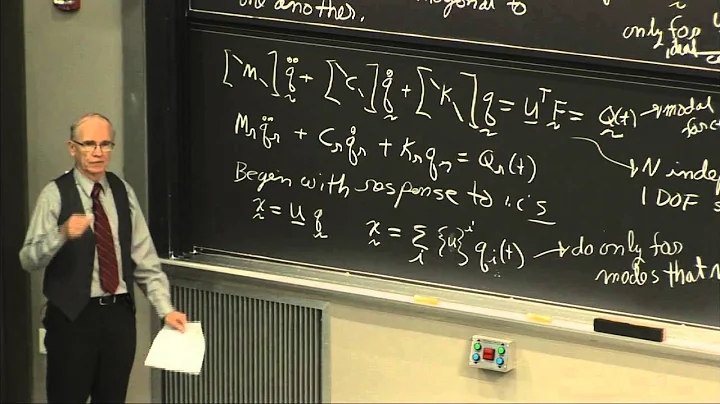 one another. orthogonal to
only for
ideal
[\M\] q̈ + [\C\] q̇ + [\K\] q = U^T F = Q(t) → modal
forc
M_r q̈_r + C_r q̇_r + K_r q_r = Q_r(t)
→ N indep
1 DOF s
Begin with response to i.c.'s
x = U q x = Σ_i {u}^i q_i(t) → do only for
modes that